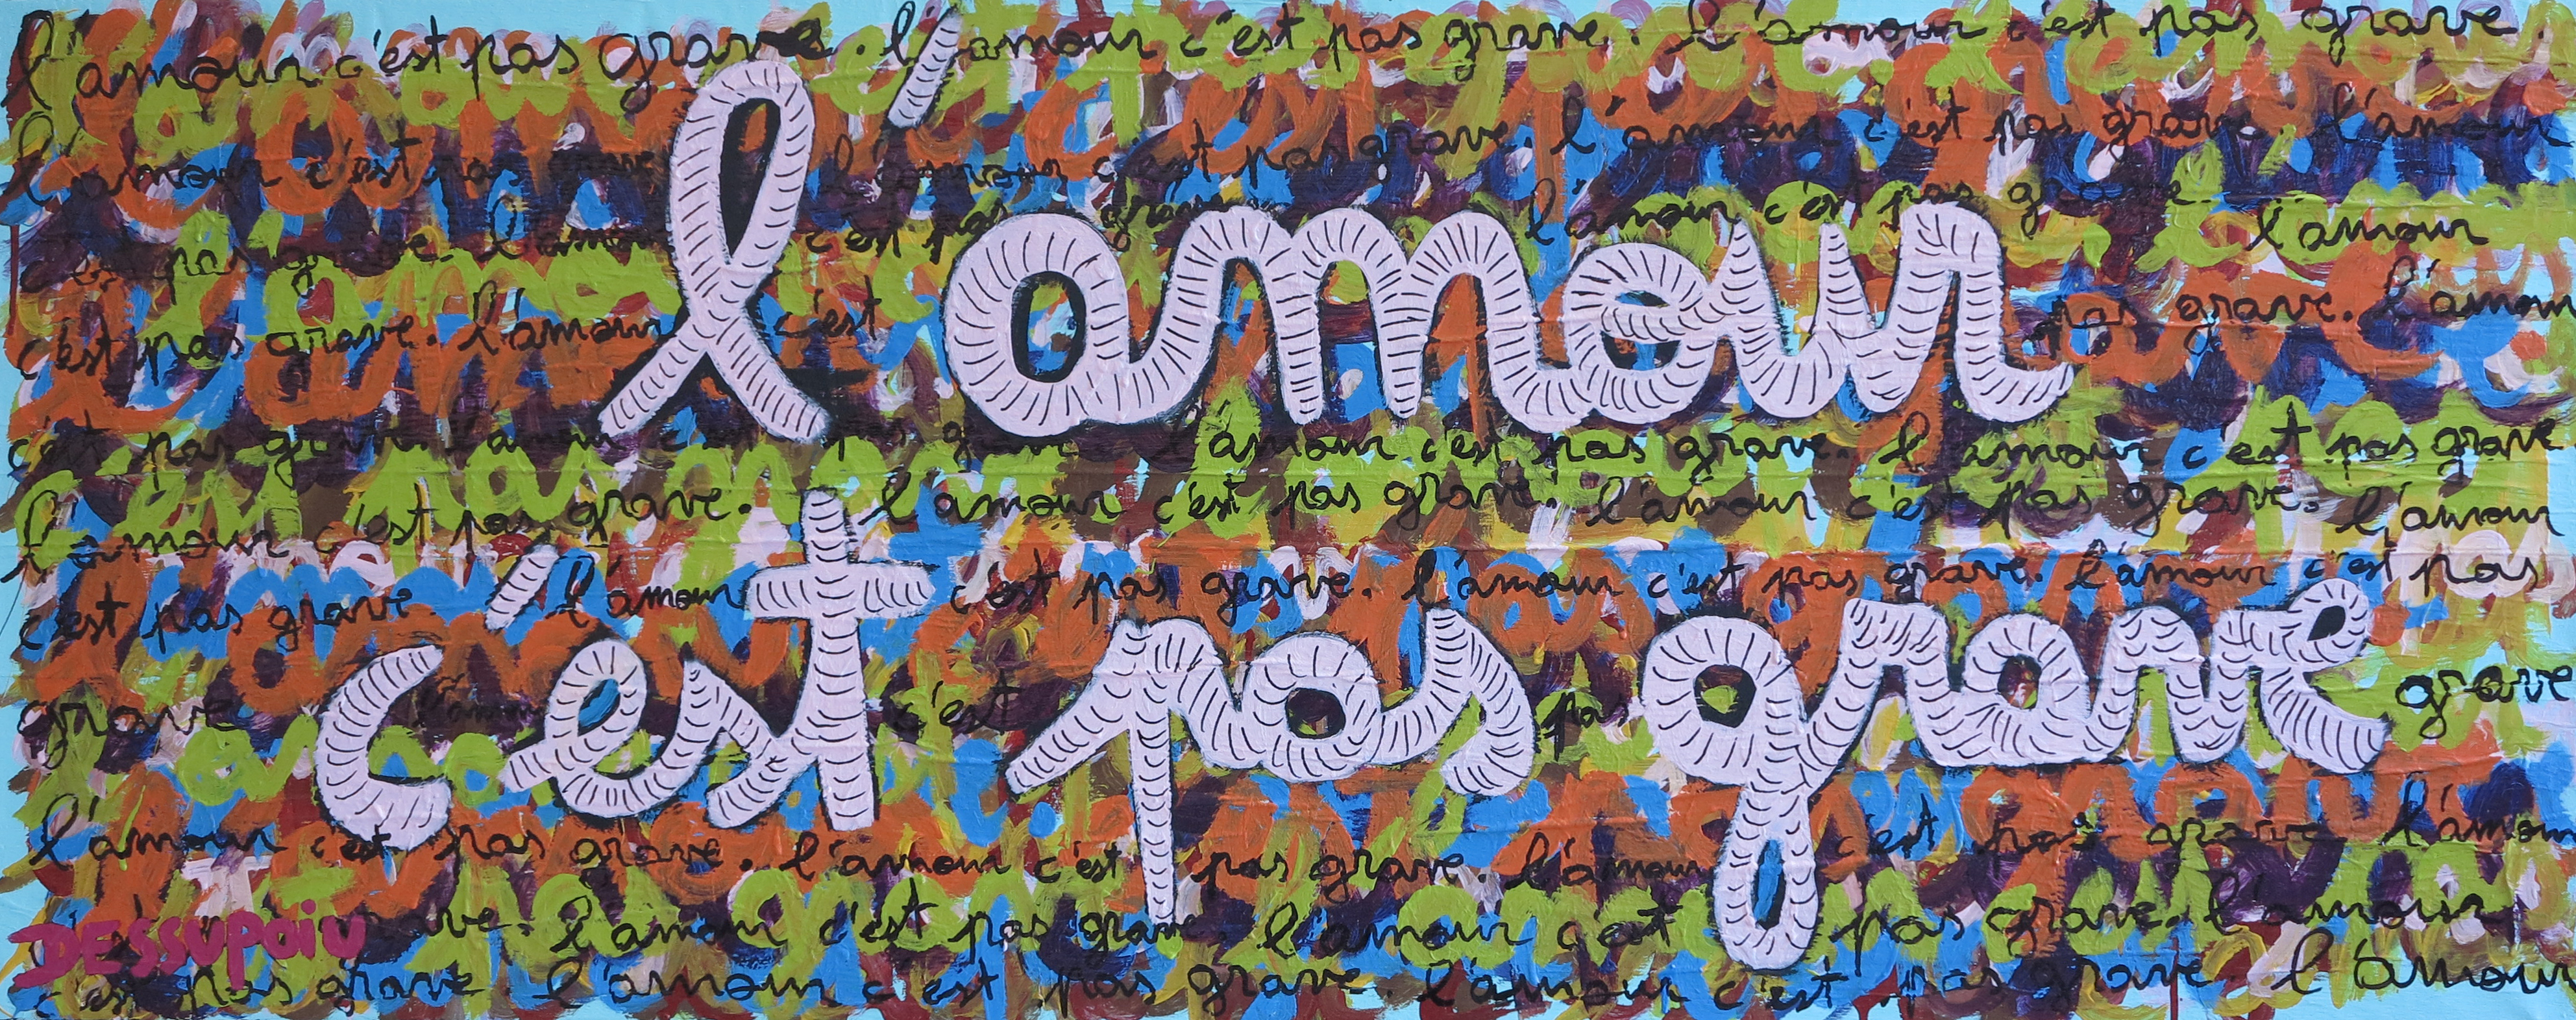 l'amour c'est pas grave. l'amour c'est pas grave. l'amour c'est pas grave.
l'amour c'est pas grave l'amour c'est pas grave. l'amour c'est pas grave. l'amour
c'est pas grave. l'amour c'est pas grave l'amour c'est pas grave l'amour
l'amour
c'est pas grave. l'amour c'est pas grave. l'amour
c'est pas grave. l'amour c'est pas grave l'amour c'est pas grave. l'amour c'est pas grave
l'amour c'est pas grave. l'amour c'est pas grave. l'amour c'est pas grave. l'amour
c'est pas grave. l'amour c'est pas grave. l'amour c'est pas grave. l'amour c'est pas
c'est pas grave
grave l'amour c'est pas grave
l'amour c'est pas grave. l'amour c'est pas grave. l'amour c'est pas grave l'amour
grave. l'amour c'est pas grave l'amour c'est pas grave. l'amour
DESSUPOIU
c'est pas grave. l'amour c'est pas grave. l'amour c'est pas grave. l'amour